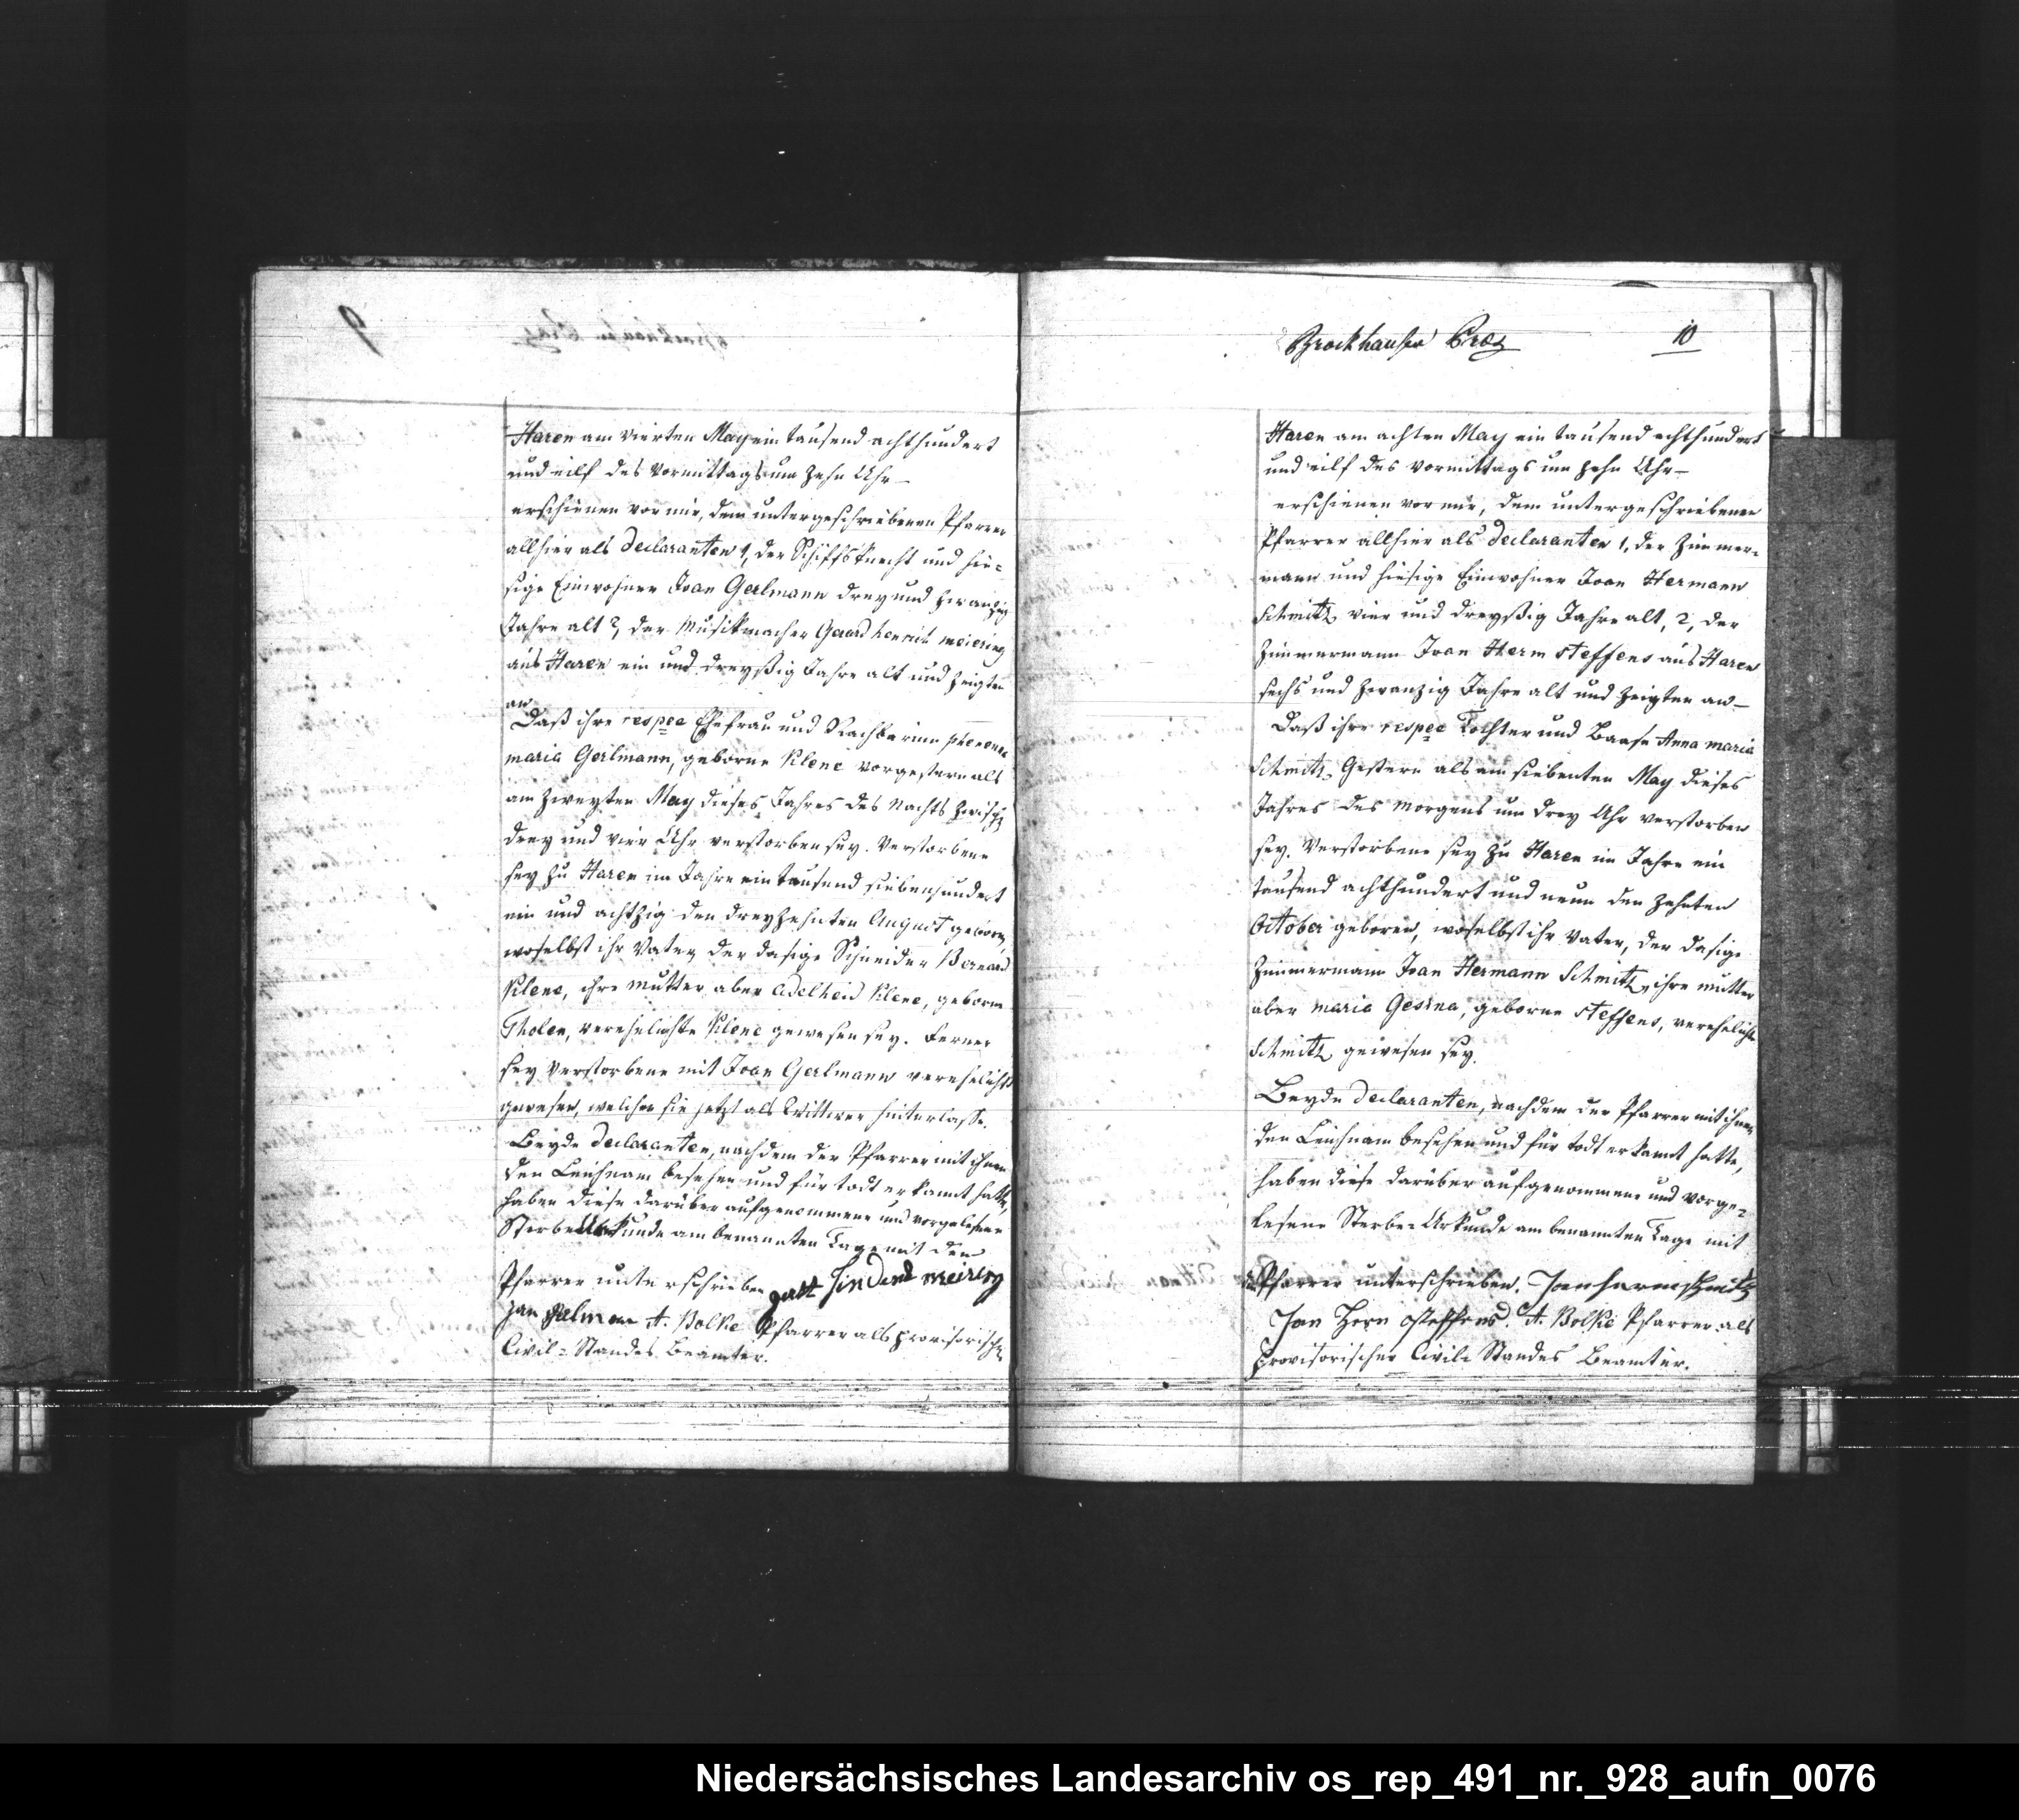 Haren am vierten May ein tausend achthundert
und eilf des Vormittags um zehn Uhr –
erschienen vor mir, dem untergeschriebenen Pfarrer
allhier als Declaranten 1, der Schiffsknecht und hie=
sige Einwohner Joan Gerlmann drey und zwanzig
Jahre alt 2, der Musikmacher Gerard henrich meiering
aus Haren ein und dreyßig Jahre alt und zeigten
an
Daß ihre respee Ehefrau und Nachbarinn
maria Gerlmann, geborne Klene vorgestern als
am zweyten May dieses Jahres des Nachts zwisch
drey und vier Uhr verstorben sey. Verstorbene
sey zu Haren im Jahre ein tausend siebenhundert
ein und achtzig den dreyzehnten August geboren,
woselbst ihr Vater der dasige Schneider Bernard
Klene, ihre Mutter aber Adelheid Klene, geborne
Tholen, verehelichte Klene gewesen sey. Ferner
sey Verstorbene mit Joan Gerlmann verehelicht
gewesen, welcher sie jetzt als Wittwer hinterlasse.
Beyde Declaranten, nachdem der Pfarrer mit ihnen
den Leichnam besehen und für todt erkannt hatte,
haben diese darüber aufgenommene und vorgelesene
Sterbe Urkunde am benannten Tage mit dem
Pfarrer unterschrieben meiring
Jan A. Bolke Pfarrer als provisorischer
Civil=Standes Beamter.
Brockhauser Proz
10
Haren am achten May ein tausend achthundert
und eilf des Vormittags um zehn Uhr –
erschienen vor mir, dem untergeschriebenen
Pfarrer allhier als Declaranten 1, der Zimmer=
mann und hiesige Einwohner Joan Hermann
Schmitz vier und dreyßig Jahre alt, 2, der
Zimmermann Joan Herm Steffens aus Haren
sechs und zwanzig Jahre alt und zeigten an –
Daß ihre respee Tochter und Baase Anna maria
Schmitz Gestern als am siebenten May dieses
Jahres des Morgens um drey Uhr verstorben
sey. Verstorbene sey zu Haren im Jahre ein
tausend achthundert und neun den zehnten
October geboren, woselbst ihr Vater, der dasige
Zimmermann Joan Hermann Schmitz, ihre Mutter
aber maria Gesina, geborne Steffens, verehelichte
Schmitz gewesen sey.
Beyde Declaranten, nachdem der Pfarrer mit ihnen
den Leichnam besehen und für todt erkannt hatte,
haben diese darüber aufgenommene und vorge=
lesene Sterbe=Urkunde am benannten Tage mit
dem Pfarrer unterschrieben. Jan harm schmitz
Jan Herm Steffens. A. Bolke Pfarrer als
provisorischer Civil=Standes Beamter.
Niedersächsisches Landesarchiv os_rep_491_nr._928_aufn_0076